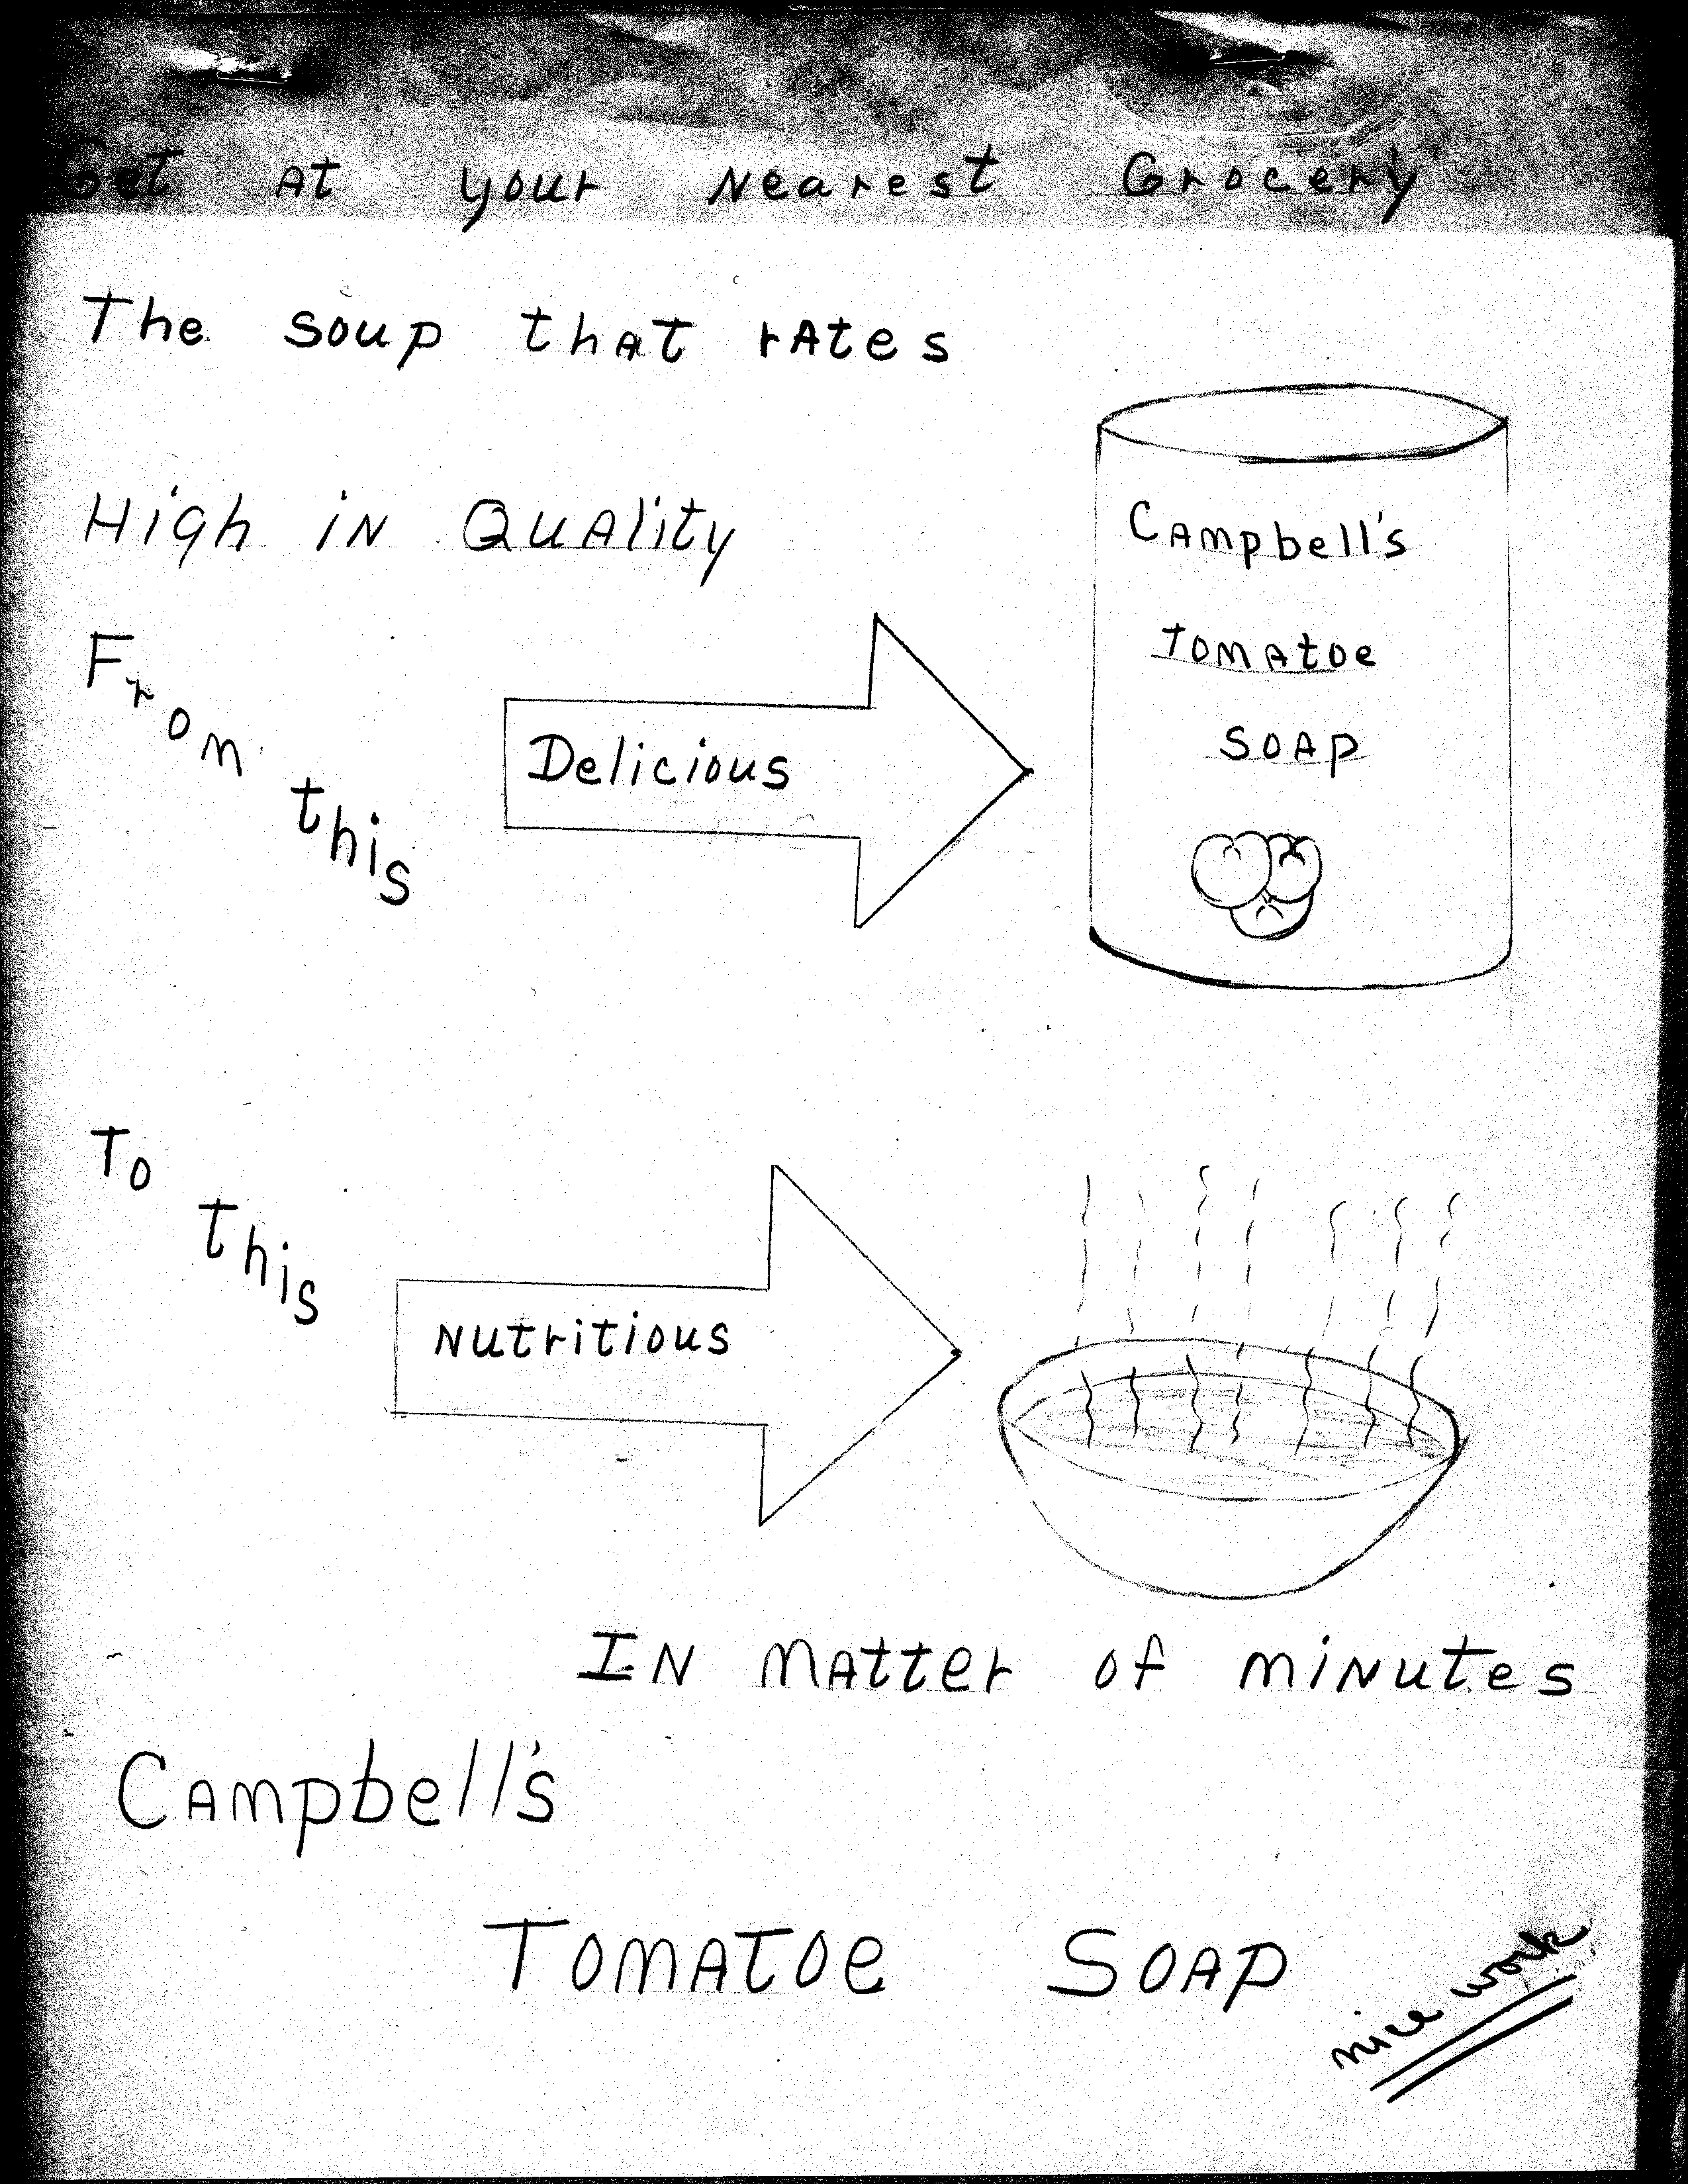 Get at your Nearest Grocery
The soup that rates
High in Quality
Campbell's
Tomatoe
Soap
From this
Delicious
To this
Nutritious
In matter of minutes
Campbell's
Tomatoe Soap
nice work